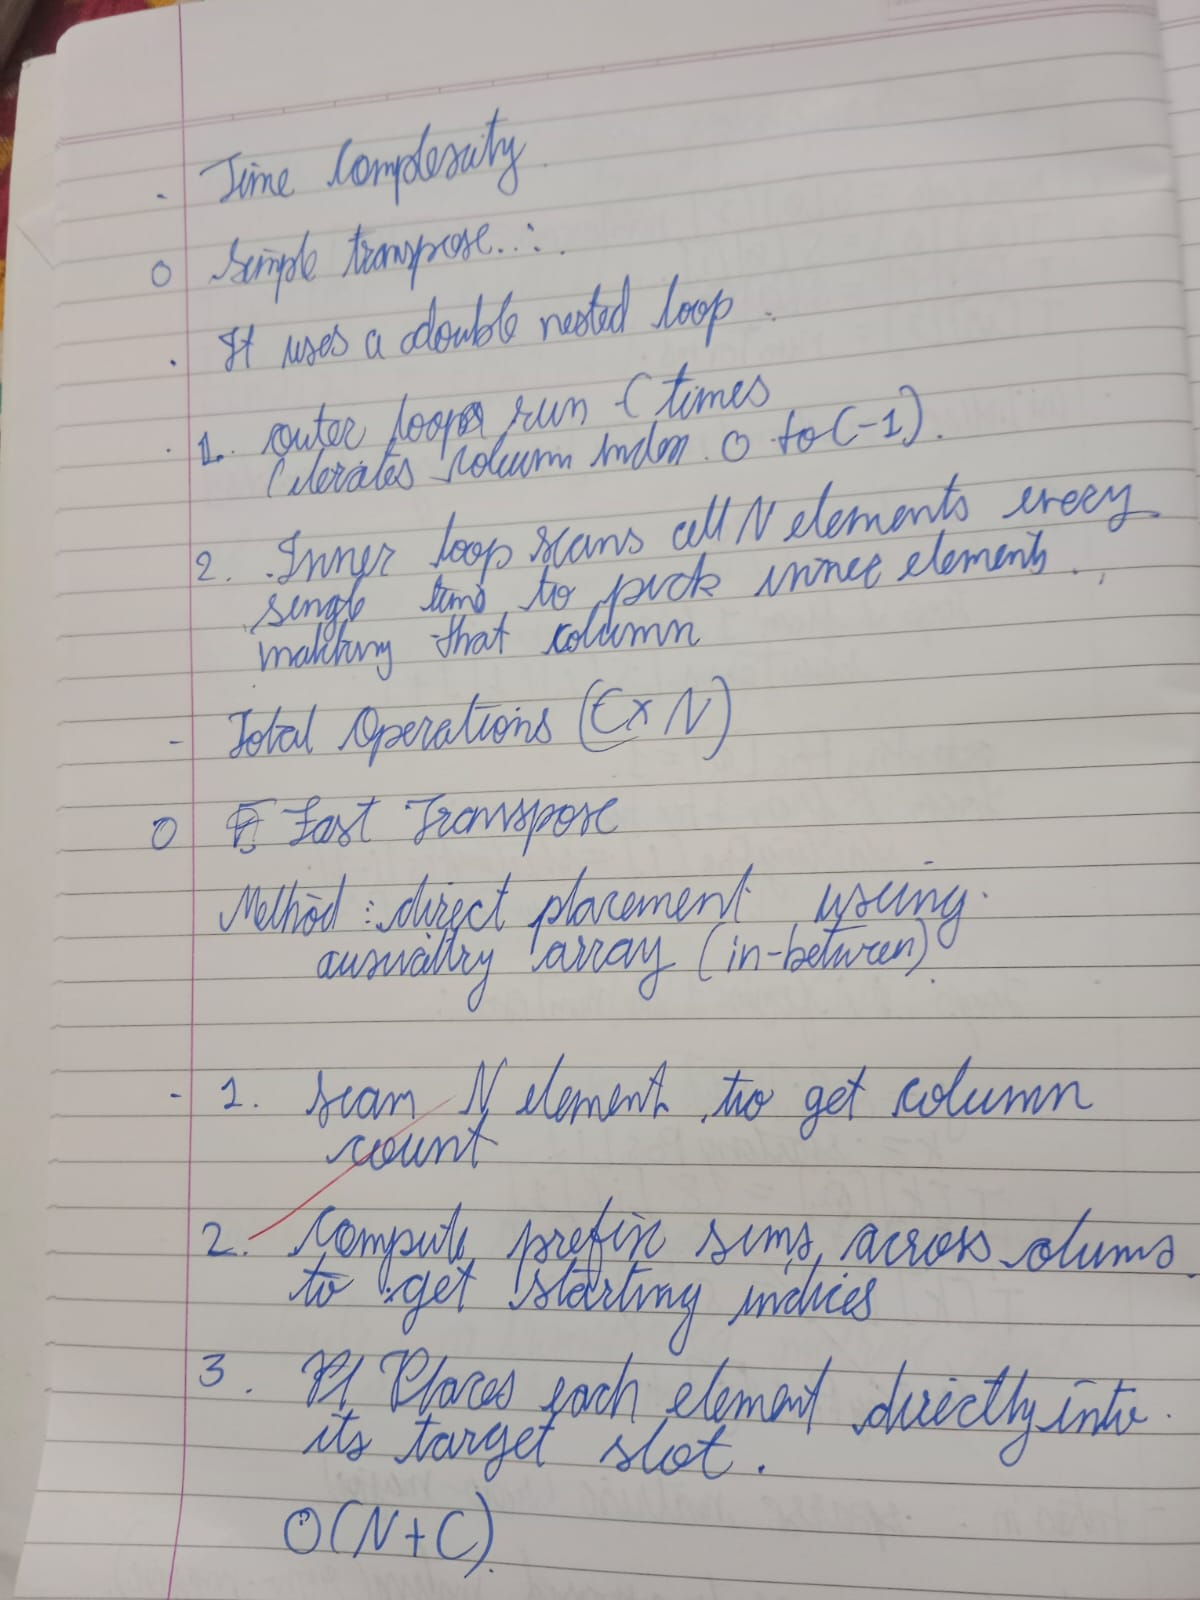 - Time Complexity.
o Simple transpose..:.
. It uses a double nested loop.
1. outer loops run C times
(iterates column index 0 to C-1).
2. Inner loop scans all N elements every
single time to pick inner elements.
making that column
- Total Operations (C x N)
o Fast Transpose
Method: direct placement using
auxiliary array (in-between)
- 1. Scan N element to get column
count
2. Compute prefix sums across colums
to get starting indices
3. Places each element directly into
its target slot.
O(N+C).